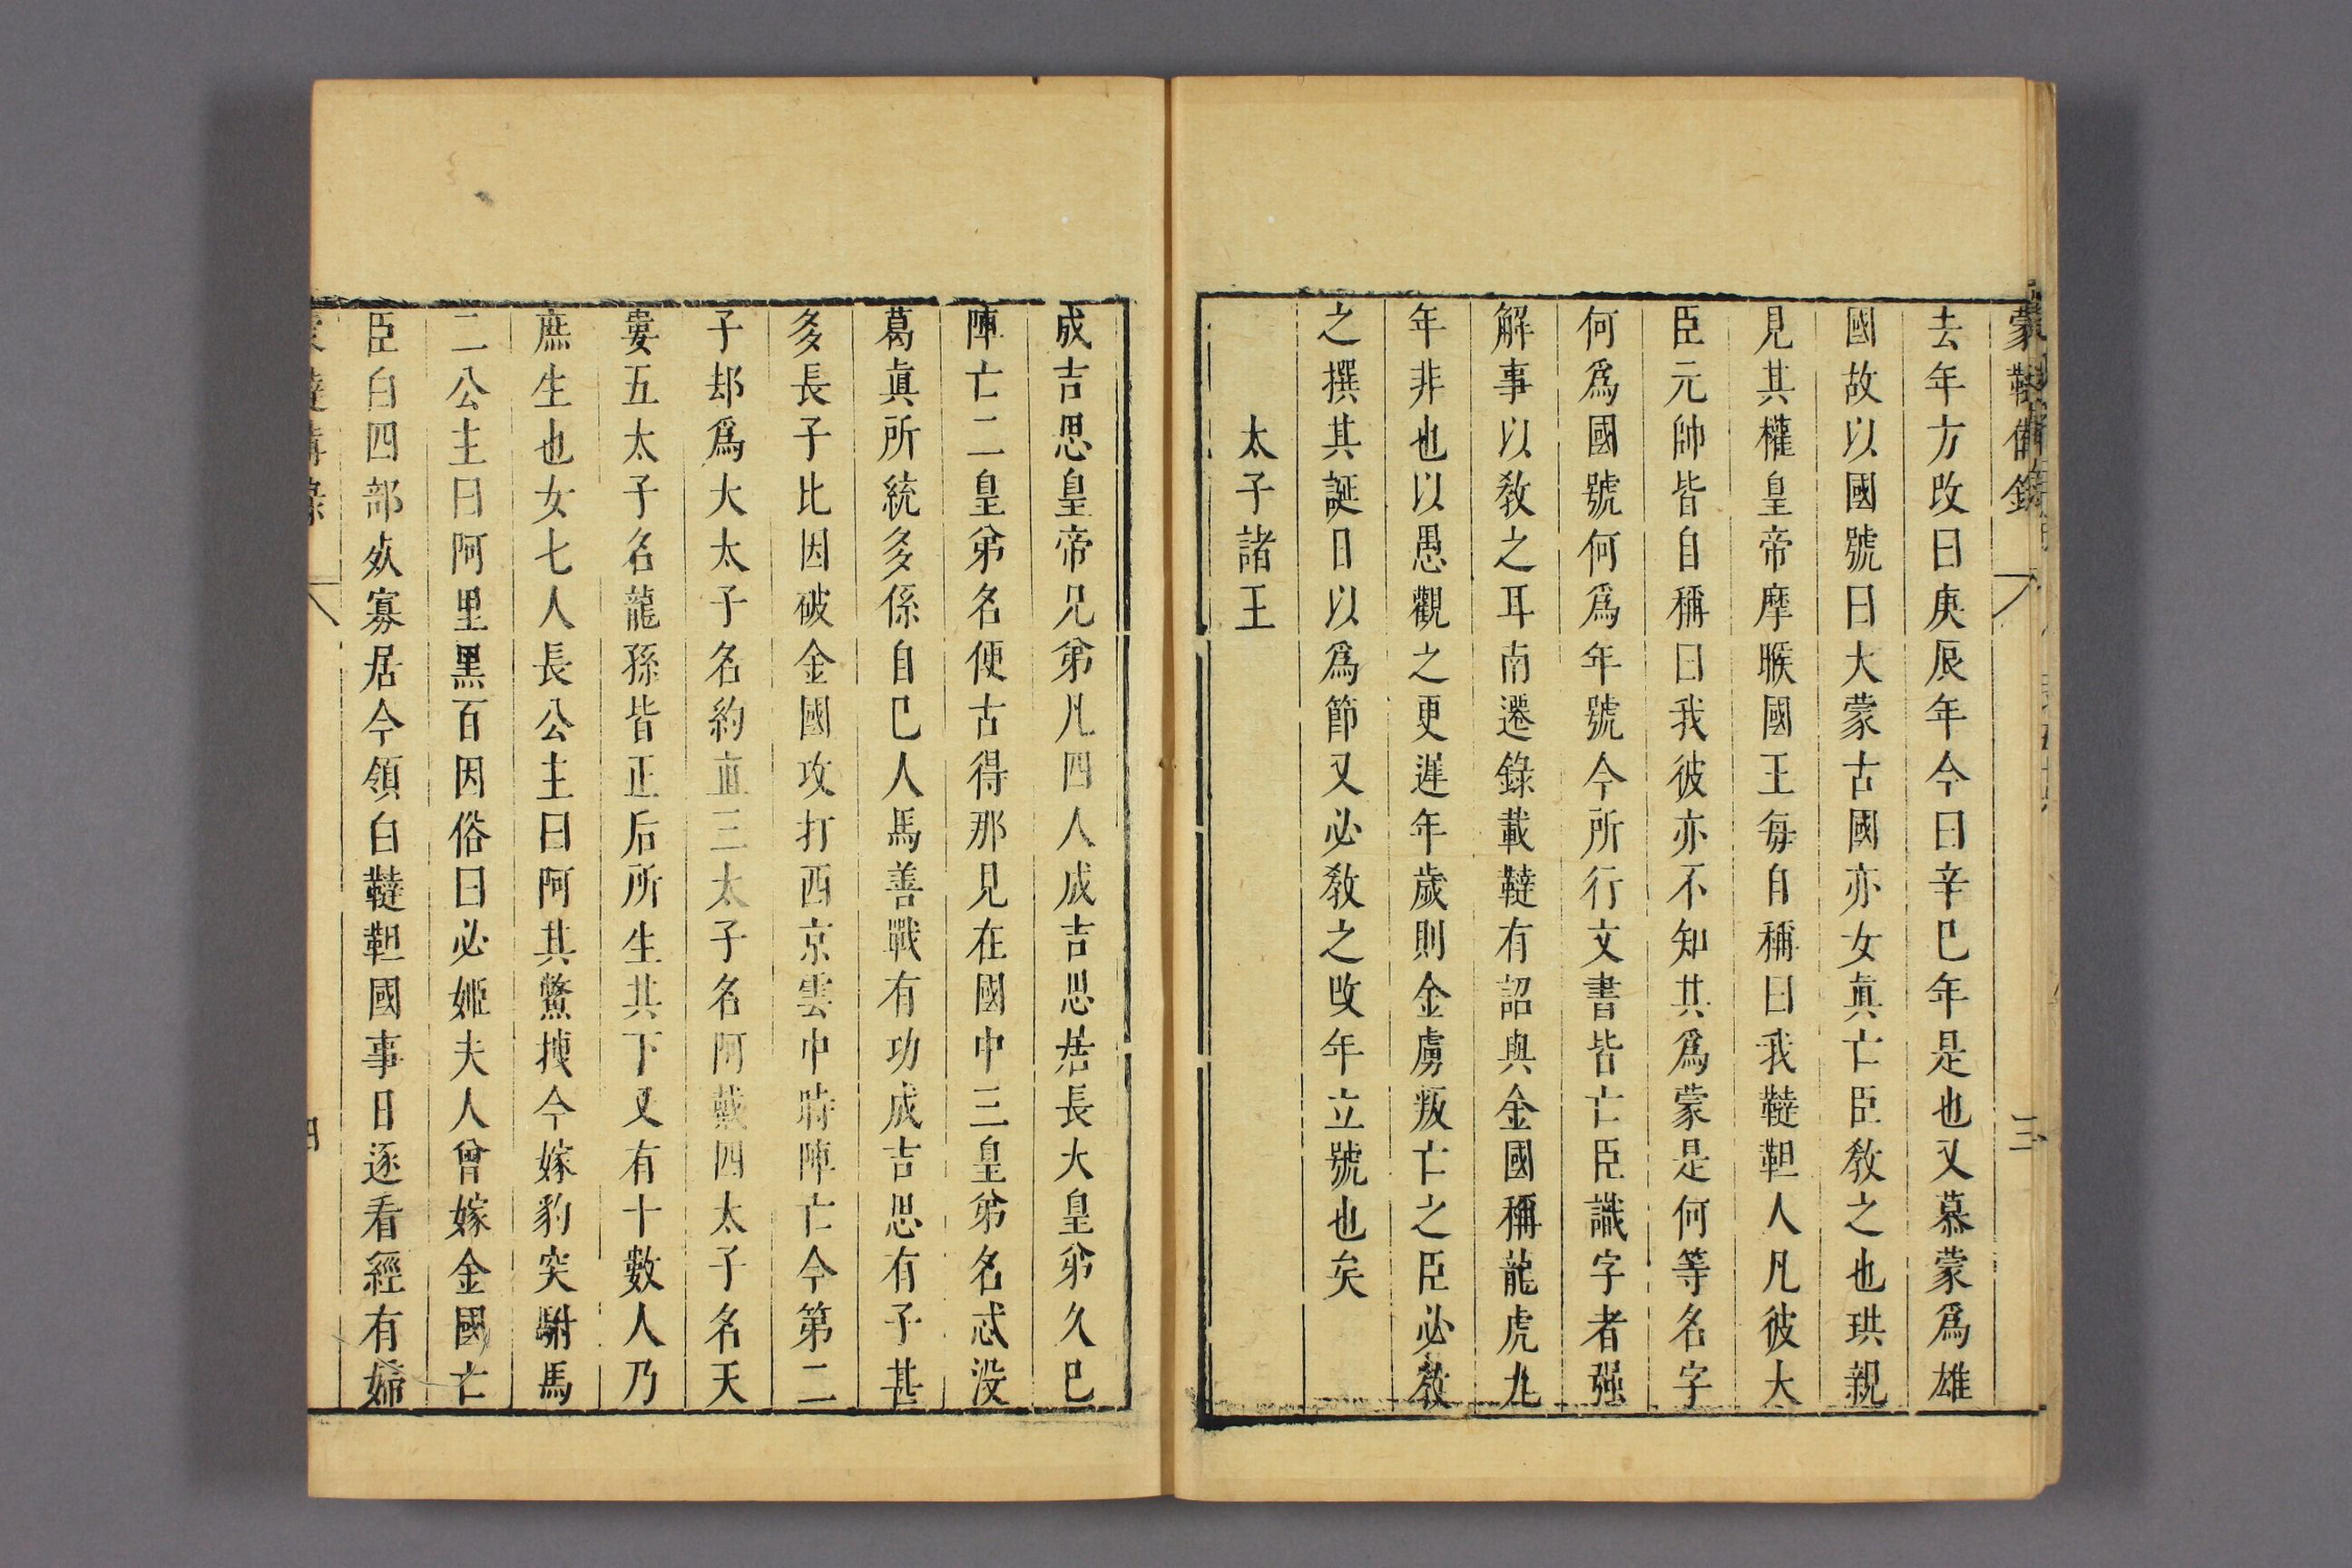 蒙韃備錄 三
去年方改曰庚辰年今曰辛巳年是也又慕蒙爲雄
國故以國號曰大蒙古國亦女眞亡臣教之也珙親
見其權皇帝摩睺國王每自稱曰我韃靼人凡彼大
臣元帥皆自稱曰我彼亦不知其爲蒙是何等名字
何爲國號何爲年號今所行文書皆亡臣識字者强
解事以教之耳南遷錄載韃有詔與金國稱龍虎九
年非也以愚觀之更遲年歲則金虜叛亡之臣必教
之撰其誕日以爲節又必教之改年立號也矣
太子諸王
成吉思皇帝兄弟凡四人成吉思居長大皇弟久已
陣亡二皇弟名便古得那見在國中三皇弟名忒没
葛眞所統多係自己人馬善戰有功成吉思有子甚
多長子比因破金國攻打西京雲中時陣亡今第二
子却爲大太子名約直三太子名阿戴四太子名天
婁五太子名龍孫皆正后所生其下又有十數人乃
庶生也女七人長公主曰阿其鱉拽今嫁豹突駙馬
二公主曰阿里黑百因俗曰必姬夫人曾嫁金國亡
臣白四部㚻寡居今領白韃靼國事日逐看經有婦